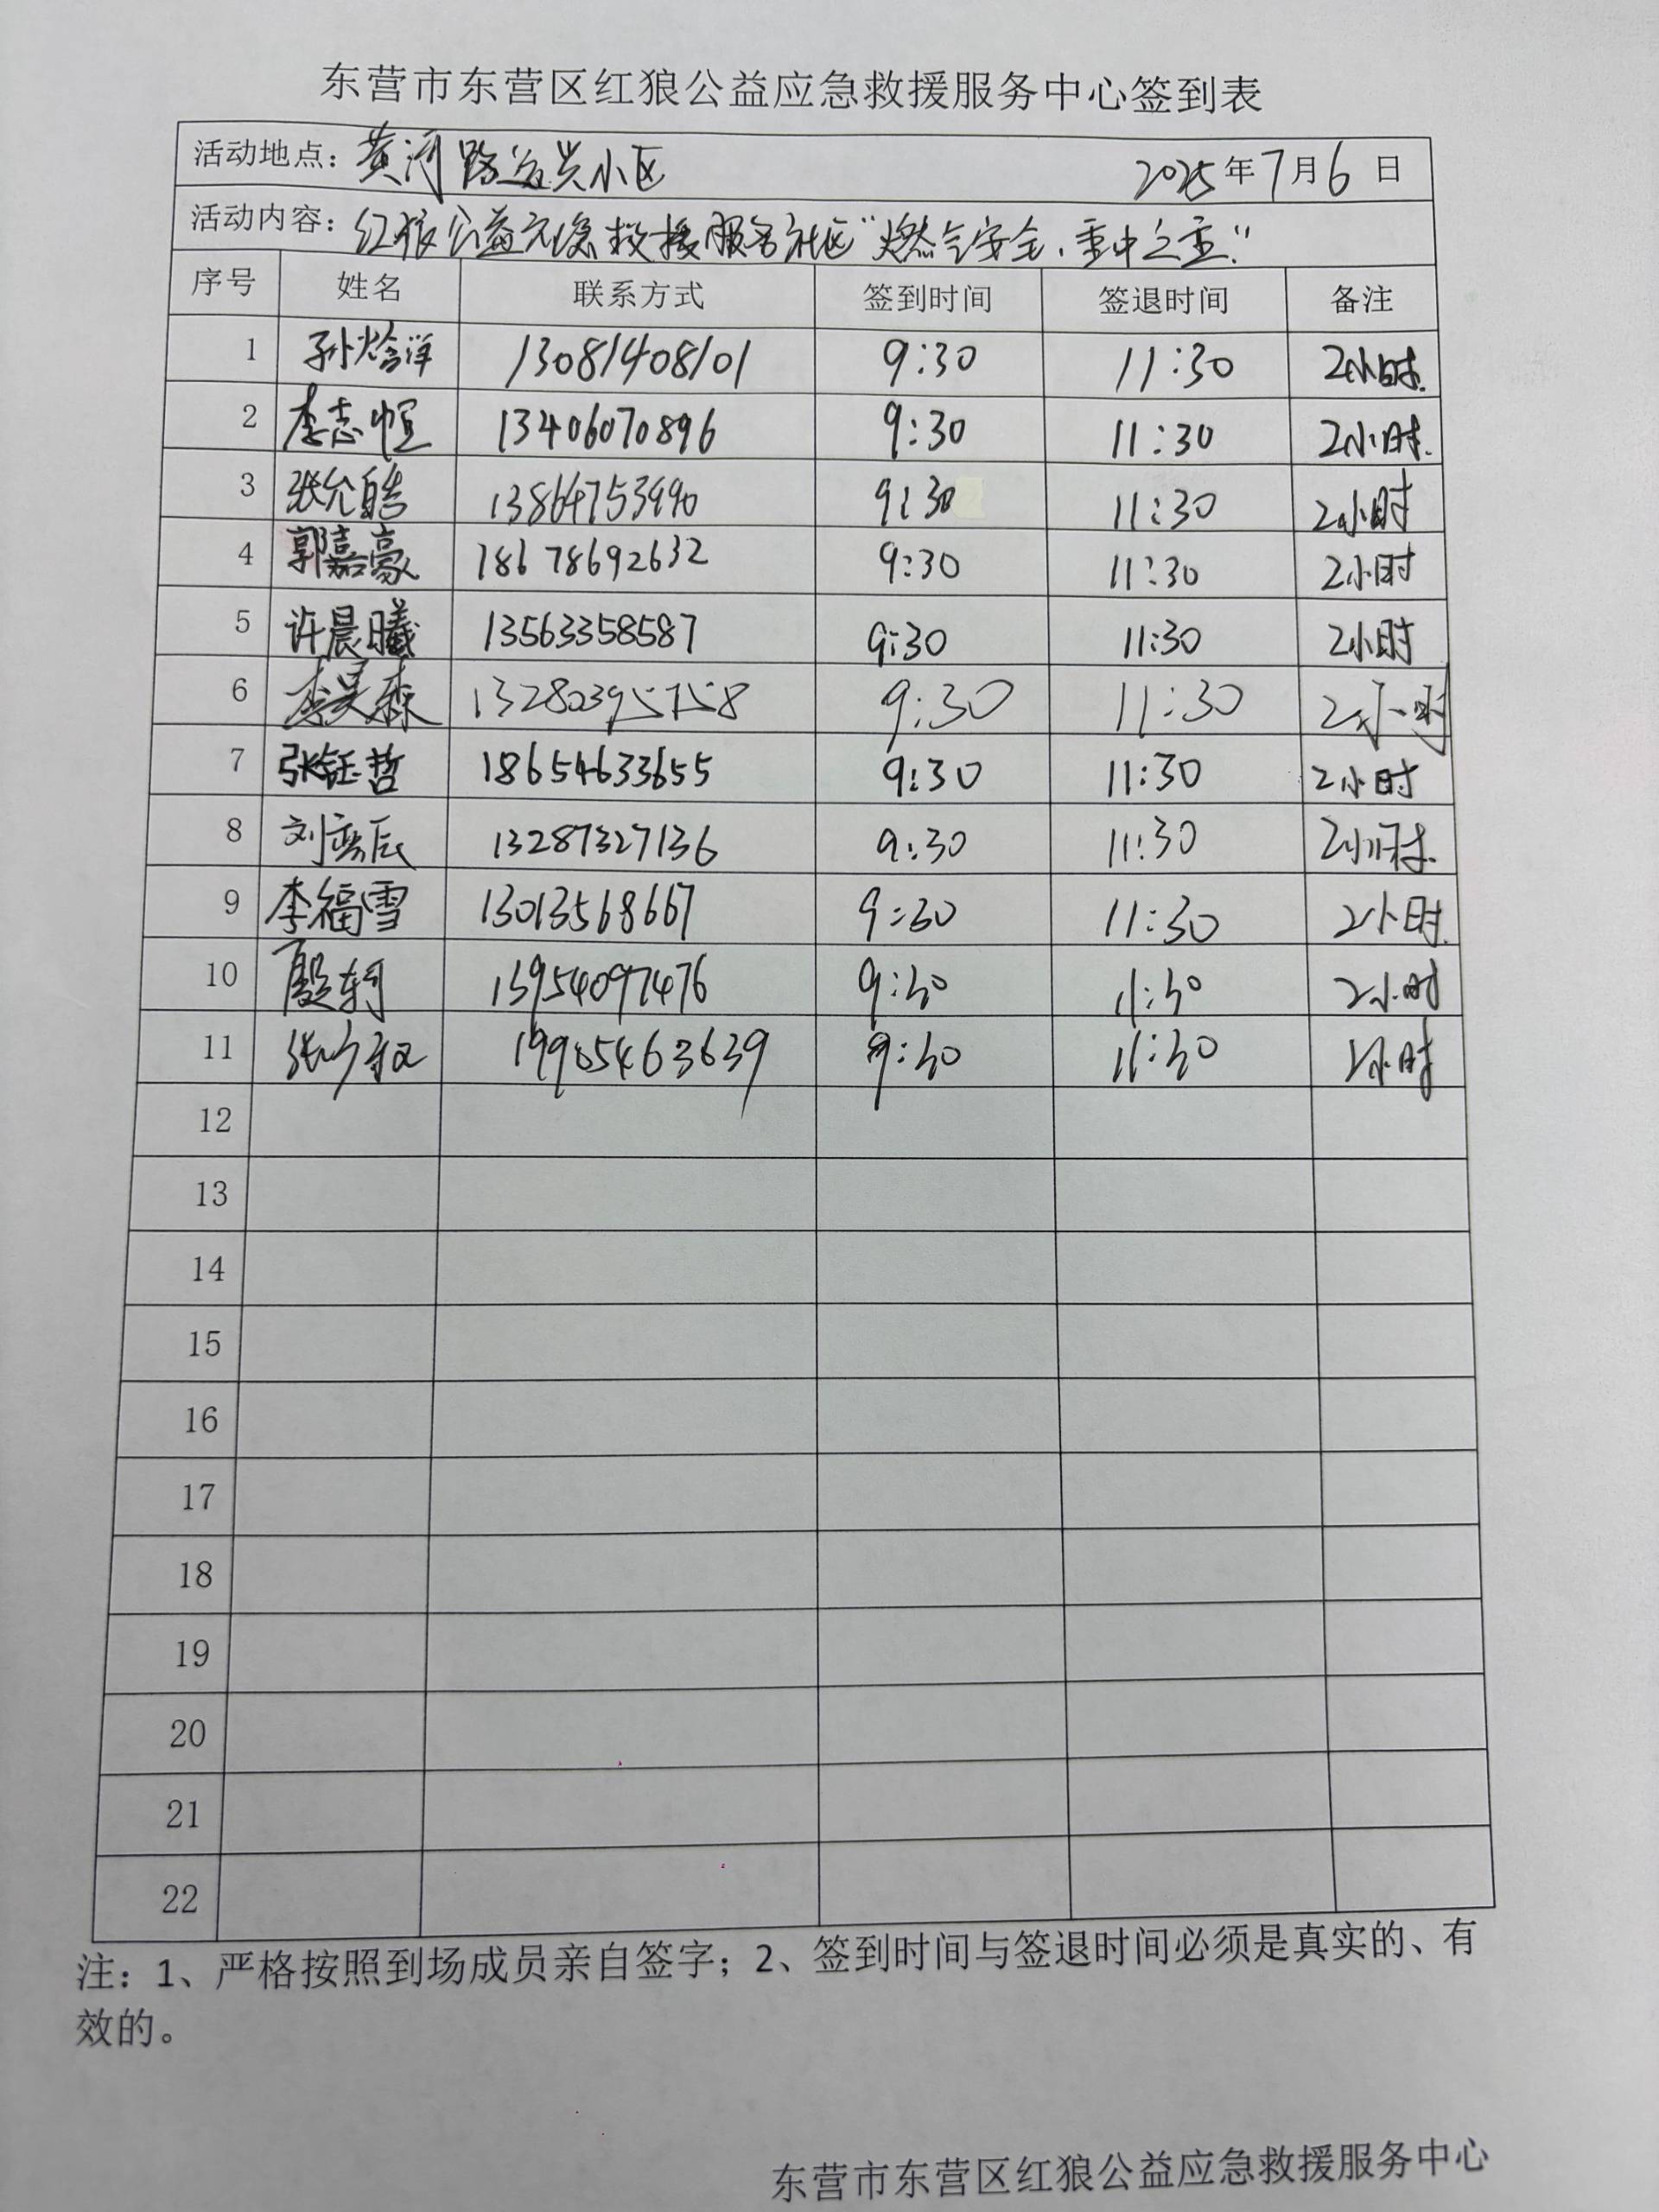 东营市东营区红狼公益应急救援服务中心签到表
活动地点：黄河路远兴小区 2025年7月6日
活动内容：红狼公益应急救援服务社区“燃气安全，重中之重”
序号 姓名 联系方式 签到时间 签退时间 备注
1 孙焓洋 13081408101 9:30 11:30 2小时.
2 李志恒 13406070896 9:30 11:30 2小时.
3 张允皓 13864753990 9:30 11:30 2小时
4 郭嘉豪 18678692632 9:30 11:30 2小时
5 许晨曦 13563358587 9:30 11:30 2小时
6 李昊森 13280395758 9:30 11:30 2小时
7 张钰哲 18654633655 9:30 11:30 2小时
8 刘奕辰 13287327136 9:30 11:30 2小时.
9 李福雪 13013568667 9:30 11:30 2小时.
10 殷轲 13954097476 9:30 11:30 2小时
11 19905463639 9:30 11:30 2小时
12
13
14
15
16
17
18
19
20
21
22
注：1、严格按照到场成员亲自签字；2、签到时间与签退时间必须是真实的、有
效的。
东营市东营区红狼公益应急救援服务中心